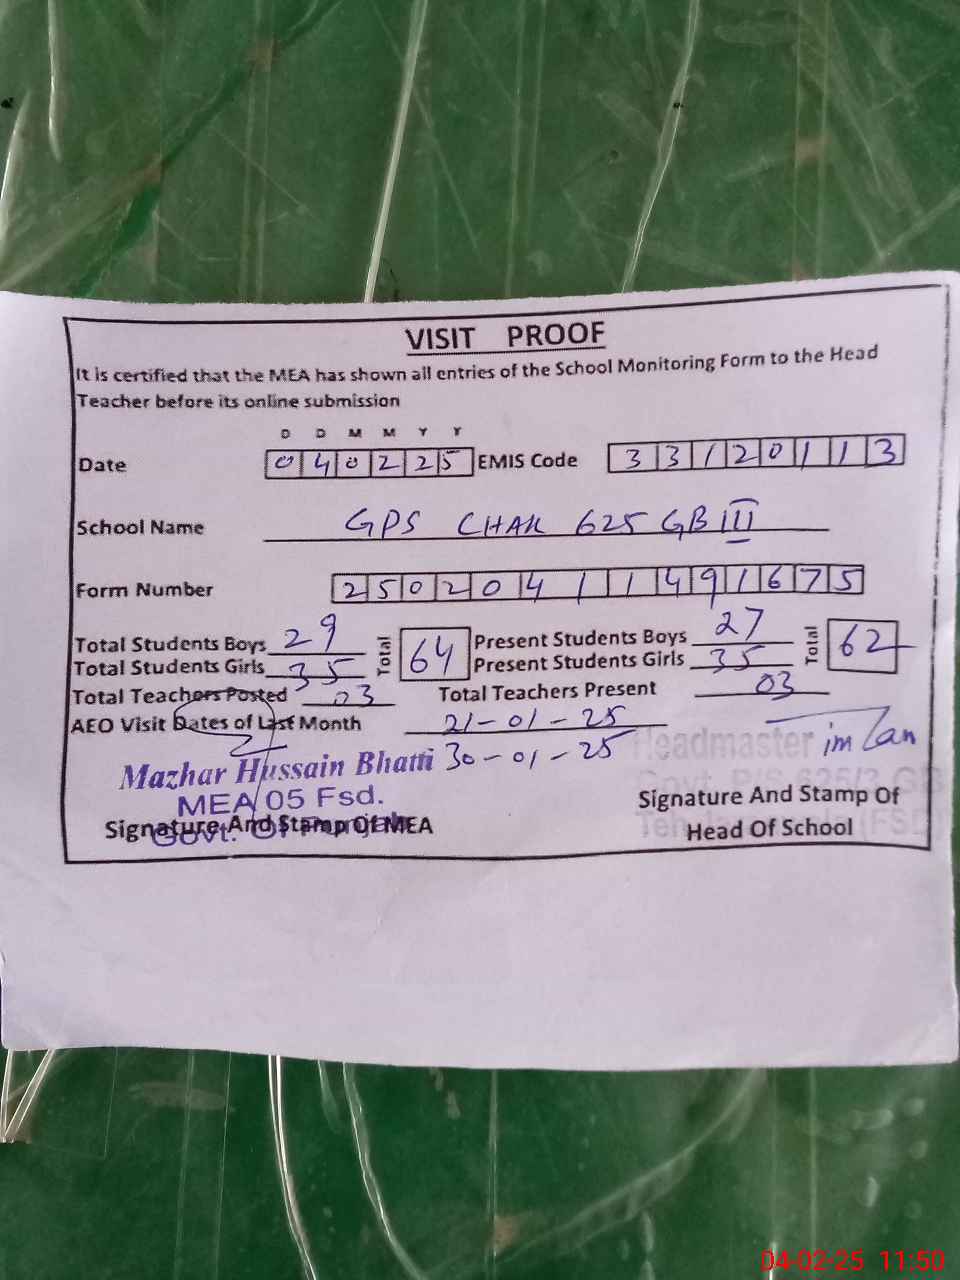 VISIT PROOF
It is certified that the MEA has shown all entries of the School Monitoring Form to the Head
Teacher before its online submission
D D M M Y Y
Date 040225 EMIS Code 33120113
School Name GPS CHAK 625 GB III
Form Number 25020411491675
Total Students Boys 29 Total 64 Present Students Boys 27 Total 62
Total Students Girls 35 Present Students Girls 35
Total Teachers Posted 03 Total Teachers Present 03
AEO Visit Dates of Last Month 21-01-25
30-01-25
Mazhar Hussain Bhatti
MEA 05 Fsd.
Govt. Of
Signature And Stamp Of MEA
Headmaster
Govt. P/S 625/3 GB
(FSD)
Signature And Stamp Of
Head Of School
04-02-25 11:50